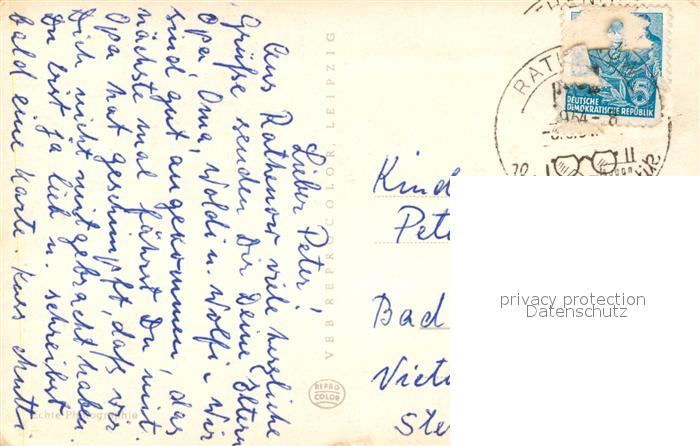 Lieber Peter!
Aus Rathenow viele herzliche
Grüße senden Dir Deine Eltern
Opa Oma, Woldi u. Wolfi. Wir
sind gut angekommen, das
nächste mal fährst Du mit.
Opa hat geschimpft, daß wir
Dich nicht mitgebracht haben.
Du bist ja lieb u. schreibst
bald eine Karte. Kuss Mutti
Echte Photographie
VEB REPROCOLOR, LEIPZIG
REPRO
COLOR
RATH
DEUTSCHE
DEMOKRATISCHE REPUBLIK
5
Kind
Pet
Bad
Vict
Ste
privacy protection
Datenschutz